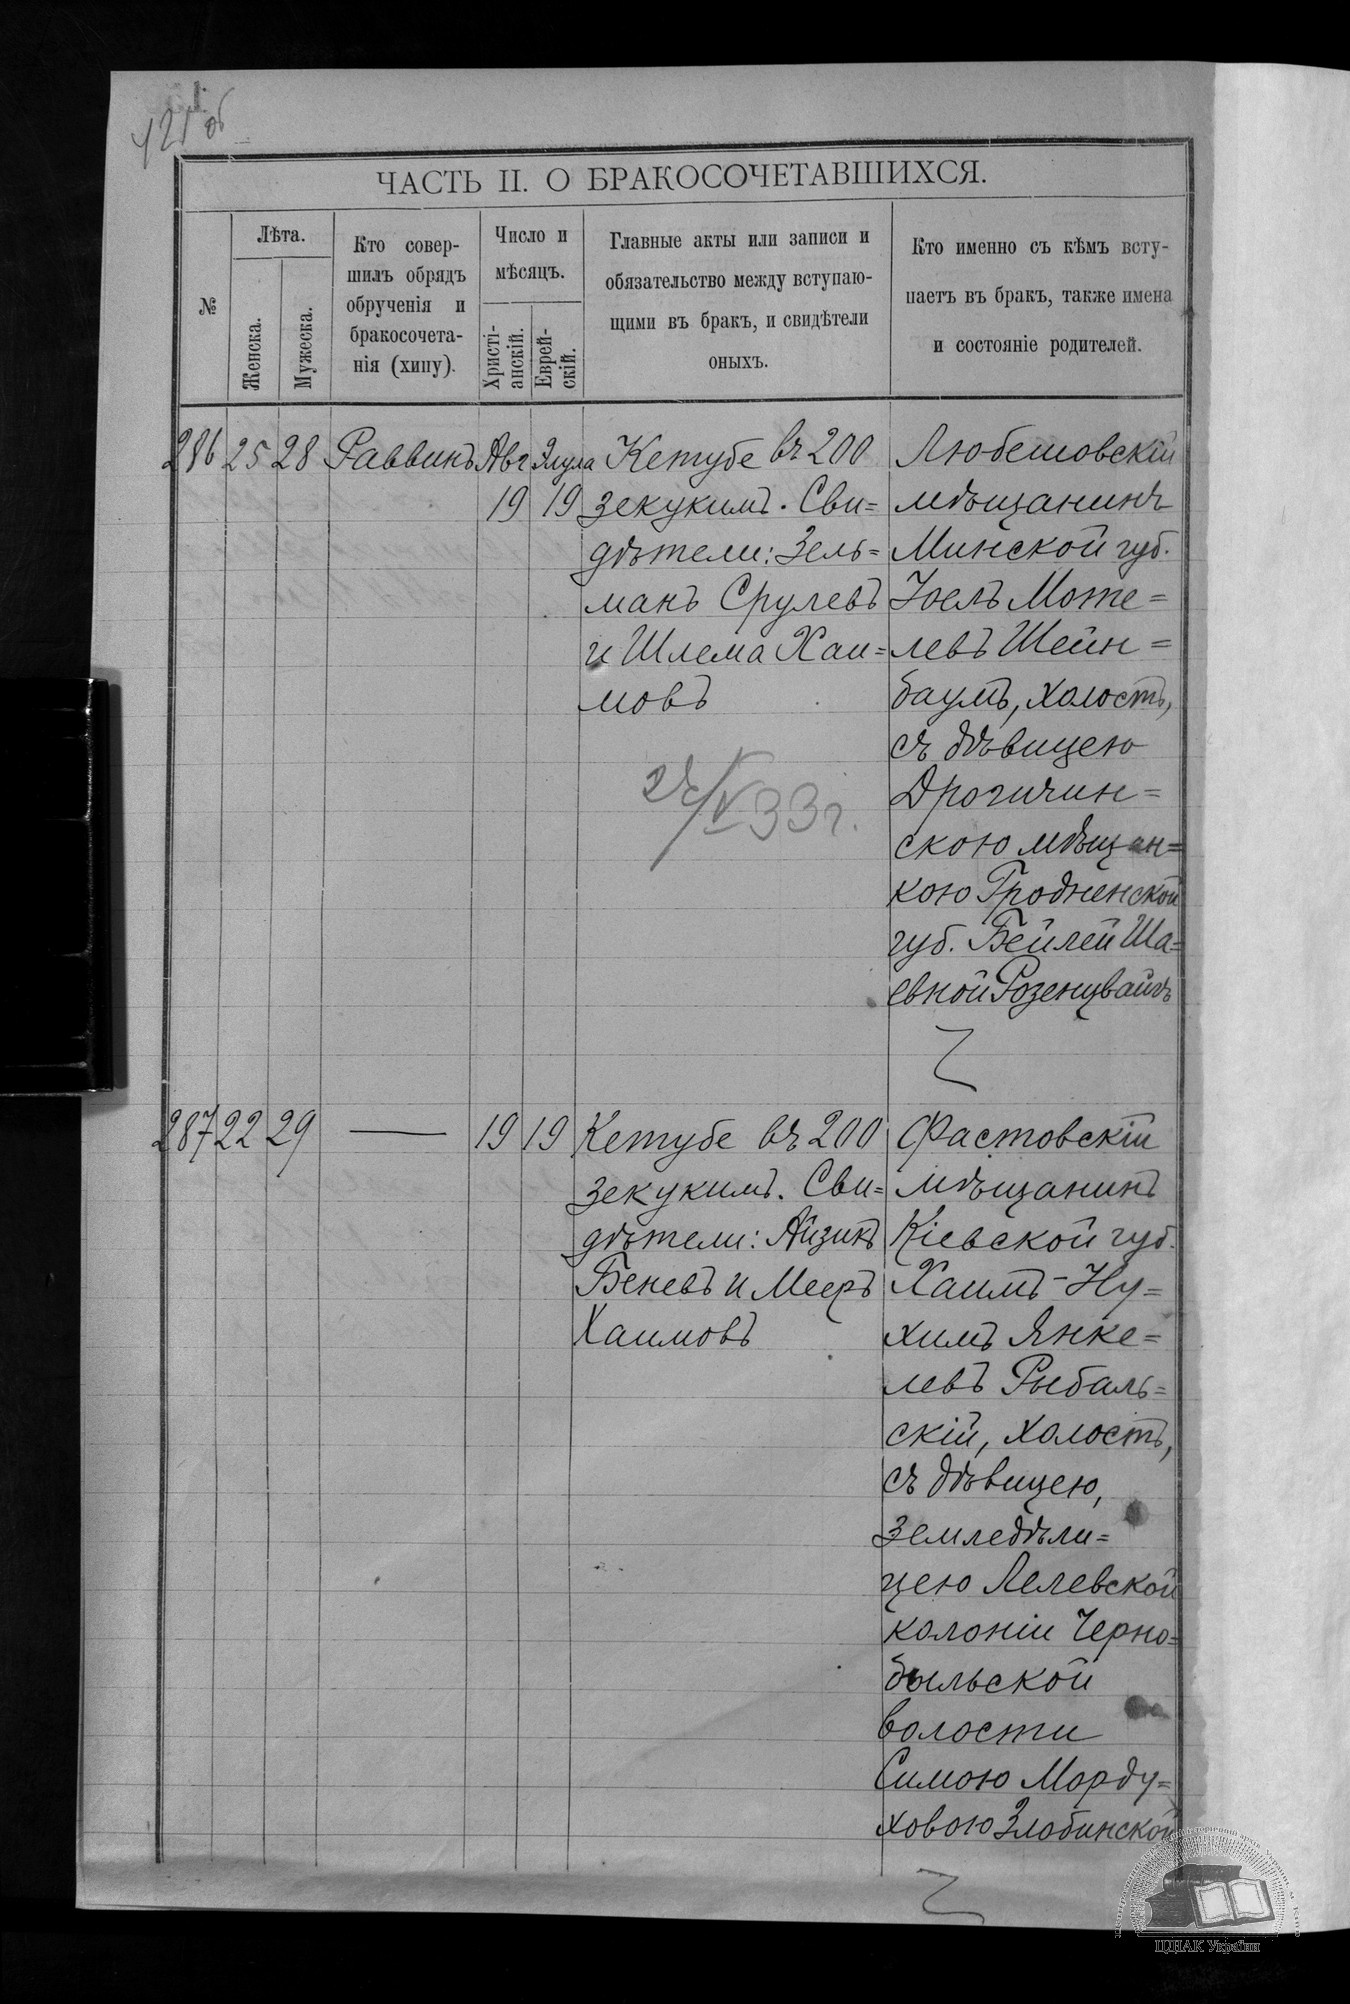 121 об
ЧАСТЬ II. О БРАКОСОЧЕТАВШИХСЯ.
№
Лѣта.
Женска.
Мужеска.
Кто совер-
шилъ обрядъ
обрученія и
бракосочета-
нія (хипу).
Число и
мѣсяцъ.
Христі-
анскій.
Еврей-
скій.
Главные акты или записи и
обязательство между вступаю-
щими въ бракъ, и свидѣтели
оныхъ.
Кто именно съ кѣмъ всту-
паетъ въ бракъ, также имена
и состояніе родителей.
286 25 28 Раввинъ Авг Элула
19 19
Кетубе въ 200
зекукимъ. Сви=
дѣтели: Зель=
манъ Срулевъ
и Шлема Хаи=
мовъ
Любешовскій
мѣщанинъ
Минской губ.
Іоель Моте=
левъ Шейн=
баумъ, холостъ,
съ дѣвицею
Дрогичин=
скою мѣщан=
кою Гродненской
губ. Бейлей Ша=
евной Розенцвайгъ
33г.
287 22 29 — 19 19
Кетубе въ 200
зекукимъ. Сви=
дѣтели: Айзикъ
Беневъ и Мееръ
Хаимовъ
Фастовскій
мѣщанинъ
Кіевской губ.
Хаимъ-Ну=
химъ Янке=
левъ Рыбаль=
скій, холостъ,
съ дѣвицею,
земледѣли=
цею Лелевской
колоніи Черно=
быльской
волости
Симою Морду=
ховою Злобинской
ЦДІАК України